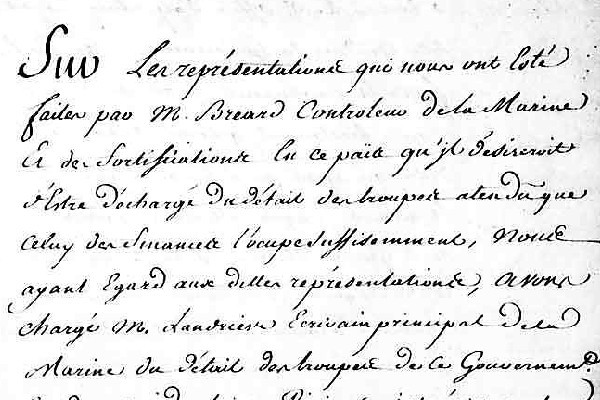 Sur Les représentations qui nous ont Esté
faites par M. Breard Controleur de la Marine
Et des fortifications En ce païs qu'il desireroit
d'Estre déchargé du détail des troupes atendu que
Celuy des finances l'ocupe suffisemment, Nous
ayant Egard aux dittes représentations, avons
chargé M. Landrieve Ecrivain principal de la
Marine du détail des troupes de ce Gouvernem.t